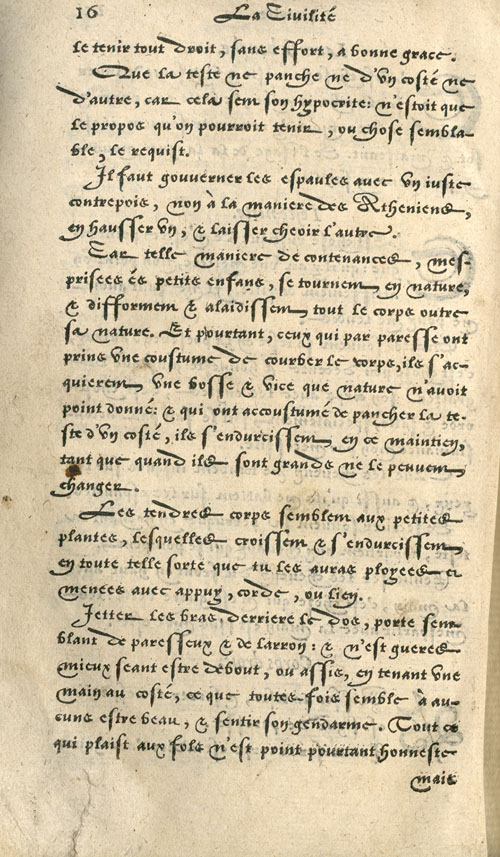 16 La Civilité
le tenir tout droit, sans effort, a bonne grace.
Que la teste ne panche ne d'vn costé ne
d'autre, car cela sent son hypocrite: n'estoit que
le propos qu'on pourroit tenir, ou chose sembla-
ble, le requist.
Il faut gouuerner les espaules avec vn iuste
contrepois, non à la maniere des Atheniens,
en hausser vn, & laisser cheoir l'autre.
Car telle maniere de contenances, mes-
prisees és petits enfans, se tournent en nature,
& difforment & alaidissent tout le corps outre
sa nature. Et pourtant, ceux qui par paresse ont
prins vne coustume de courber le corps, ils s'ac-
quierent vne bosse & vice que nature n'avoit
point donné: & qui ont accoustumé de pancher la te-
ste d'vn costé, ils s'endurcissent en ce maintien,
tant que quand ils sont grands ne le peuuent
changer.
Les tendres corps semblent aux petites
plantes, lesquelles croissent & s'endurcissent
en toute telle sorte que tu les auras ployees et
menees avec appuy, corde, ou lien.
Jetter les bras derriere le dos, porte sem-
blant de paresseux & de larron: & n'est gueres
mieux seant estre debout, ou assis, en tenant vne
main au costé, ce que toutes-fois semble à au-
cuns estre beau, & sentir son gendarme. Tout ce
qui plaist aux fols n'est point pourtant honneste
mais